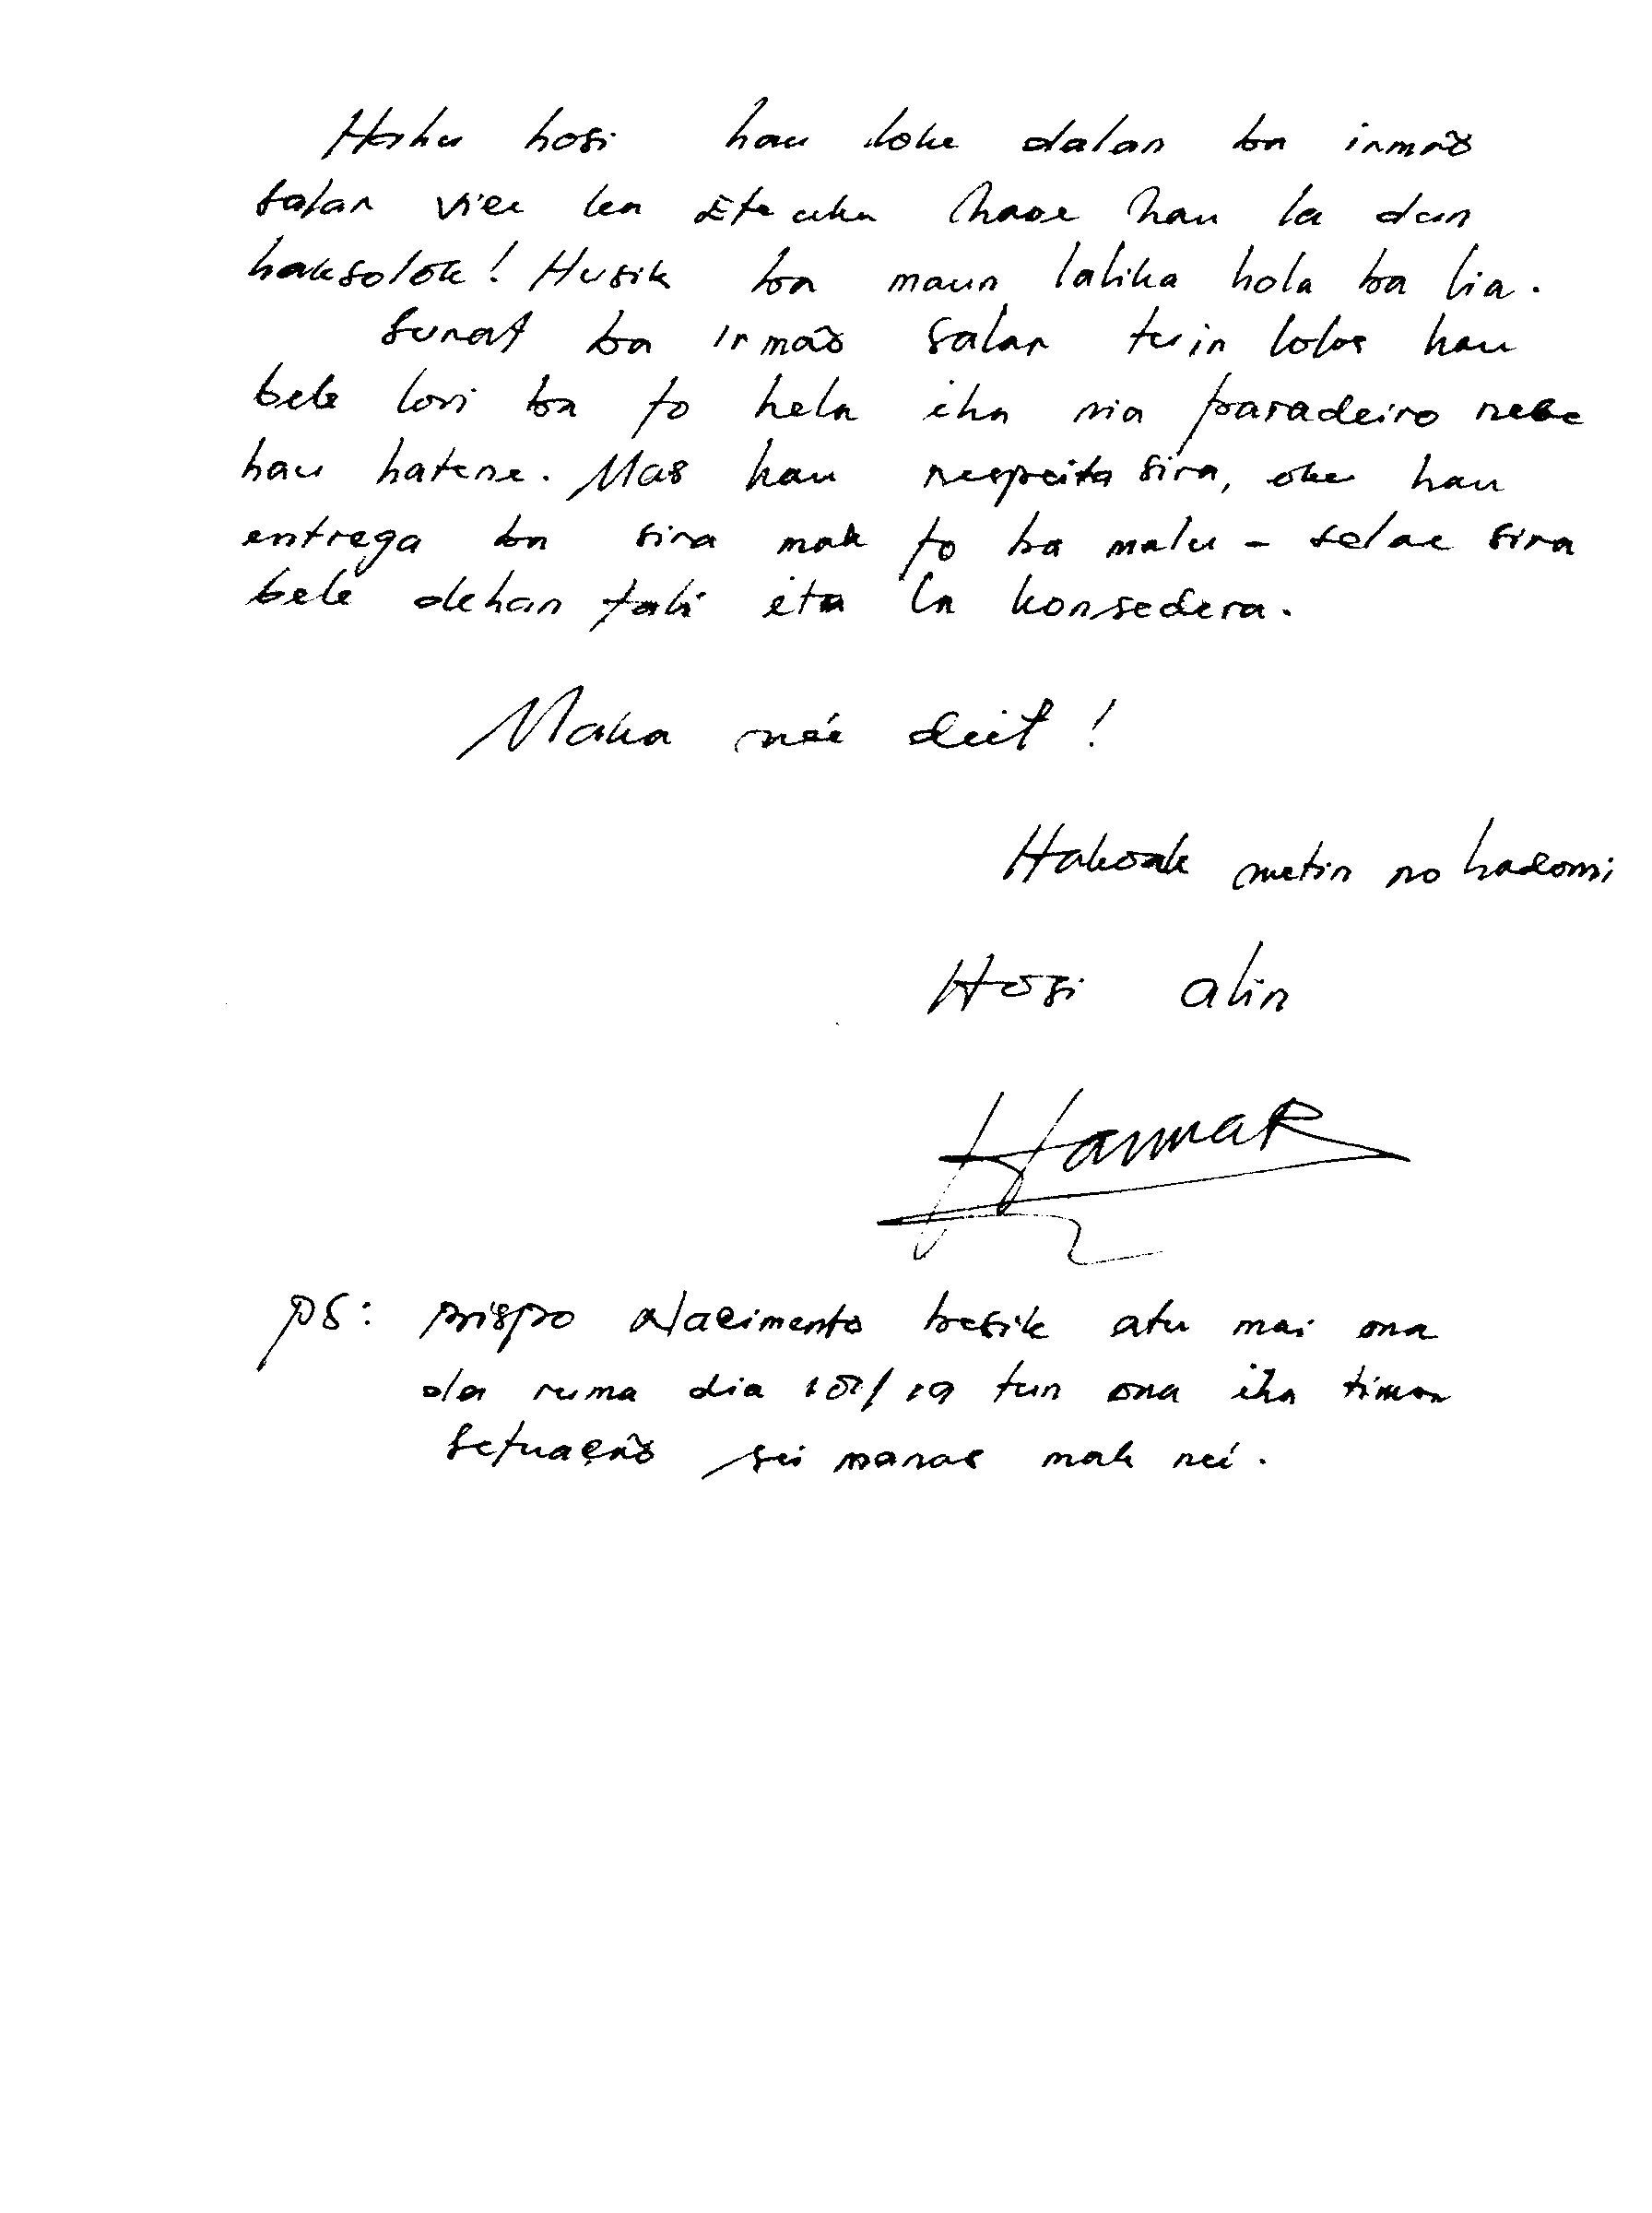 Hahu hosi hau loke dalan ba irmão
Salar vice len hau la dun
haksolok! Husik ba maun lalika hola ba lia.
Surat ba irmão Salar tuir lolos hau
bele lori ba to hela iha nia paradeiro nebe
hau hatene. Mas hau respeita sira, oke hau
entrega ba sira mak to ba malu - selae sira
bele dehan fali ita la konsedera.
Maka néé deit!
Hakoak metin no hadomi
Hosi alin
HarmaR
PS: Bispo Nacimento besik atu mai ona
ola ruma dia 18/19 tun ona iha timor
Setuação sei manas mak neé.